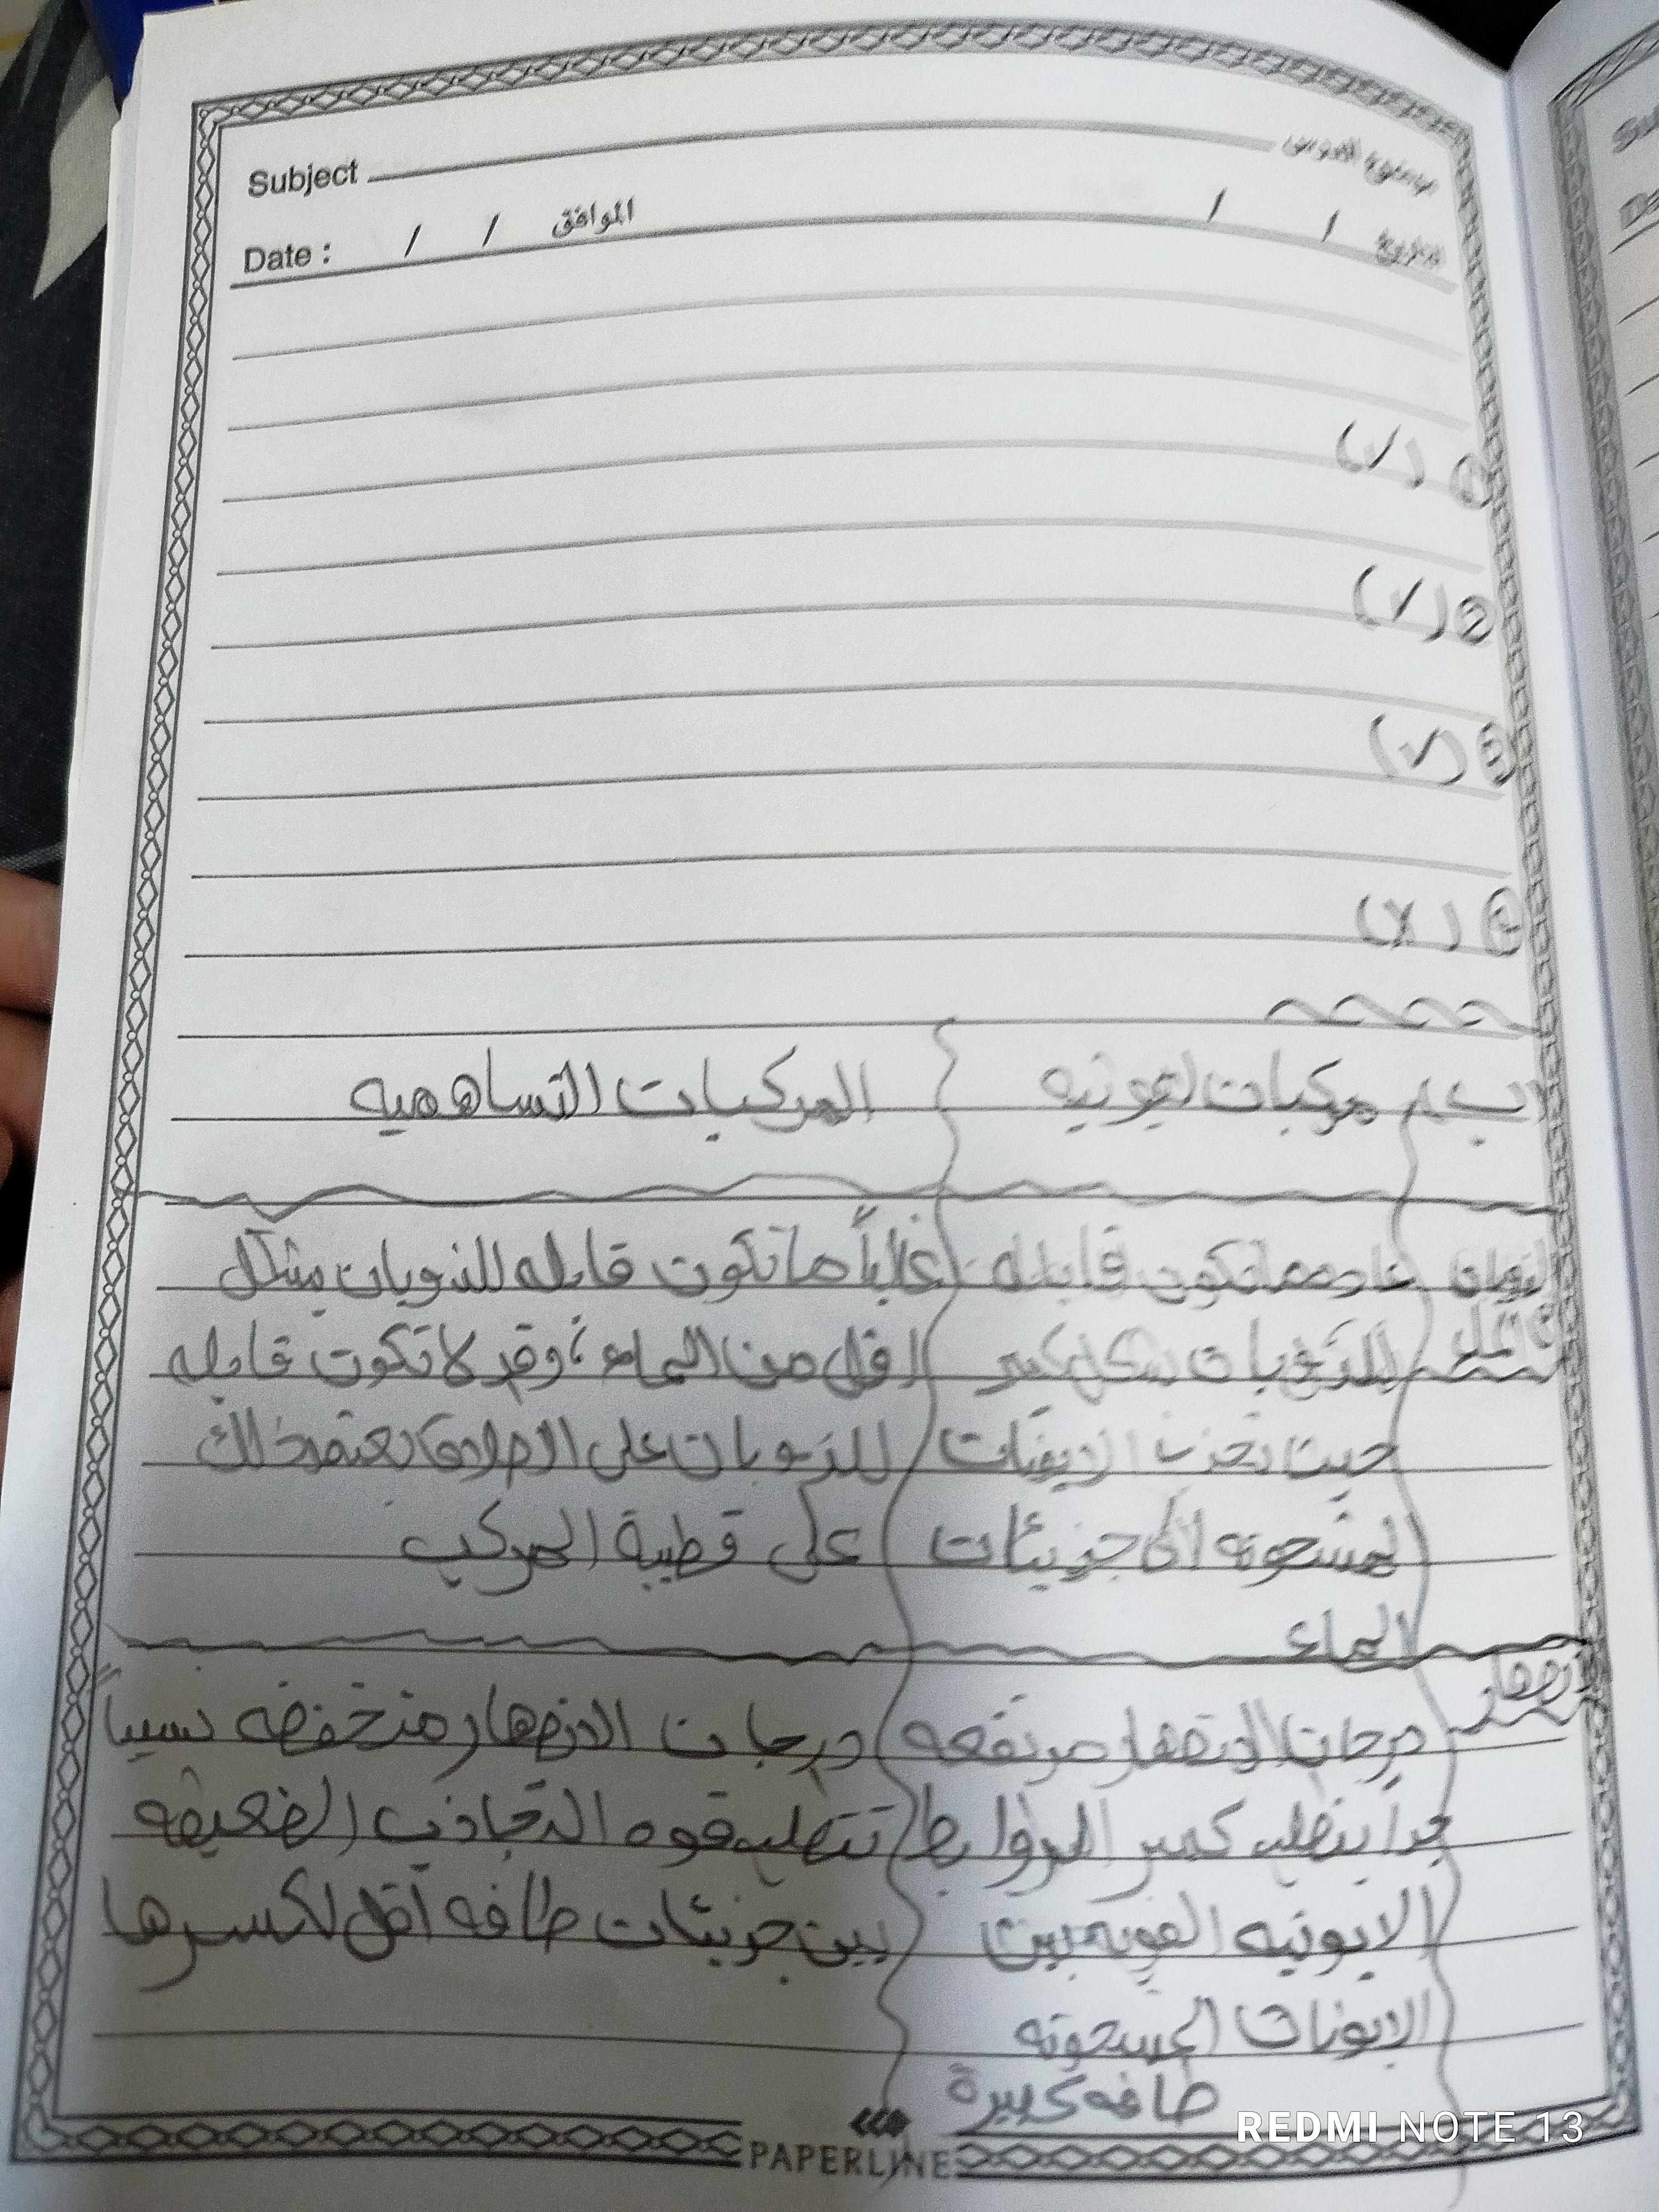 Subject موضوع الدرس
Date : / / الموافق / / التاريخ
① (✓)
② (✓)
③ (✓)
④ (X)
(ب) مركبات ايونيه المركبات التساهميه
الذوبان عادة ما تكون قابله غالباً ما تكون قابله للذوبان بشكل
للذوبان بشكل كبير اقل من الماء، وقد لا تكون قابله
حيث تجذب الايونات للذوبان على الاطلاق يعتمد ذلك
المشحونه الى جزيئات على قطبية المركب
الماء
الانصهار درجات الانصهار مرتفعه درجات الانصهار منخفضه نسبياً
جدا يتطلب كسر الروابط تتطلب قوه التجاذب الضعيفه
الايونيه القويه بين بين جزيئات طاقه أقل لكسرها
الايونات المشحونه
طاقه كبيرة
PAPERLINE
REDMI NOTE 13